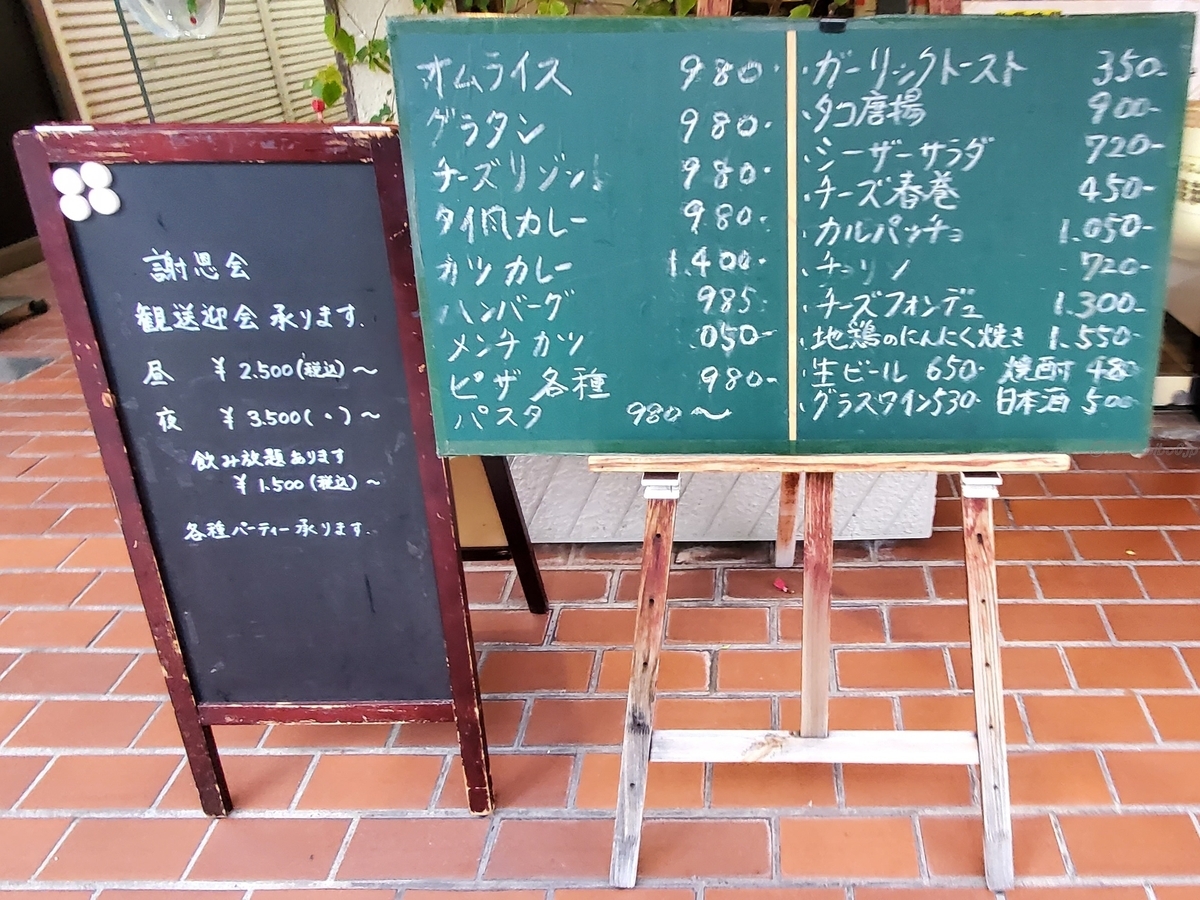 謝恩会
観送迎会承ります.
昼 ¥2.500(税込)〜
夜 ¥3.500(〃)〜
飲み放題あります
¥1.500(税込)〜
各種パーティー承ります.
オムライス 980-
グラタン 980-
チーズリゾット 980-
タイ風カレー 980-
カツカレー 1.400-
ハンバーグ 985-
メンチカツ 050-
ピザ各種 980-
パスタ 980〜
・ガーリックトースト 350-
・タコ唐揚 900-
・シーザーサラダ 720-
・チーズ春巻 450-
・カルパッチョ 1.050-
・チョリソ 720-
・チーズフォンデュ 1.300-
・地鶏のにんにく焼き 1.550-
・生ビール 650- 焼酎 480
・グラスワイン530- 日本酒 500